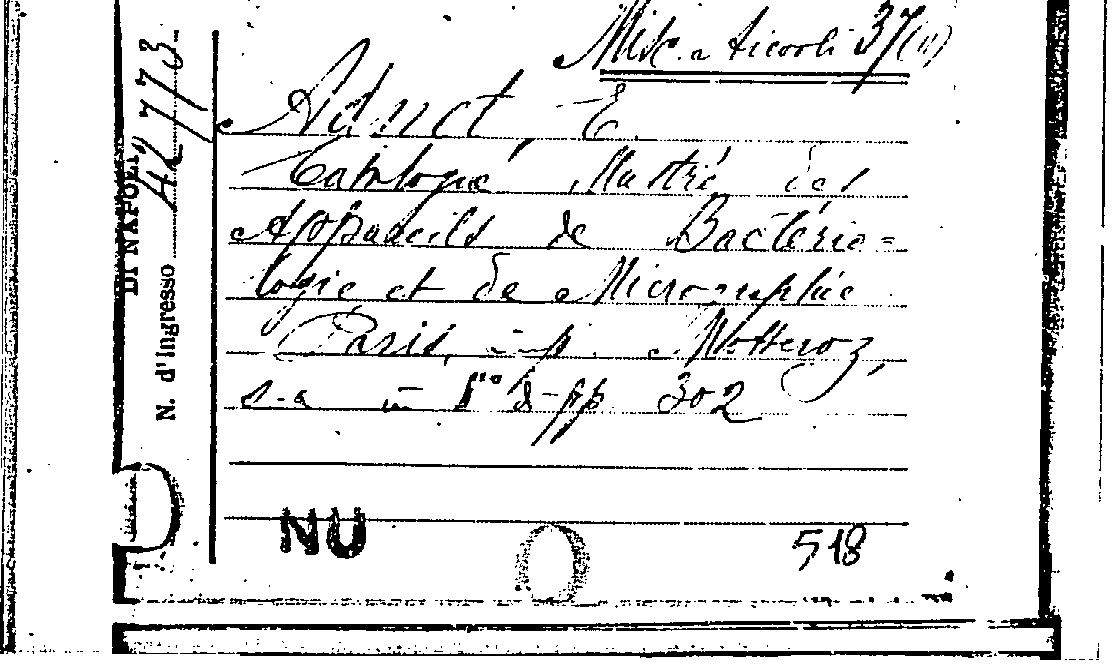 Misc. a ticoli 37(11)
Adnet, E.
Catalogue illustré des
Appareils de Bactério=
logie et de Micrographie
Paris, imp. Motteroz,
s.a in 8° di pp. 302
DI NAPOLI
N. d'Ingresso 42773
NU
518